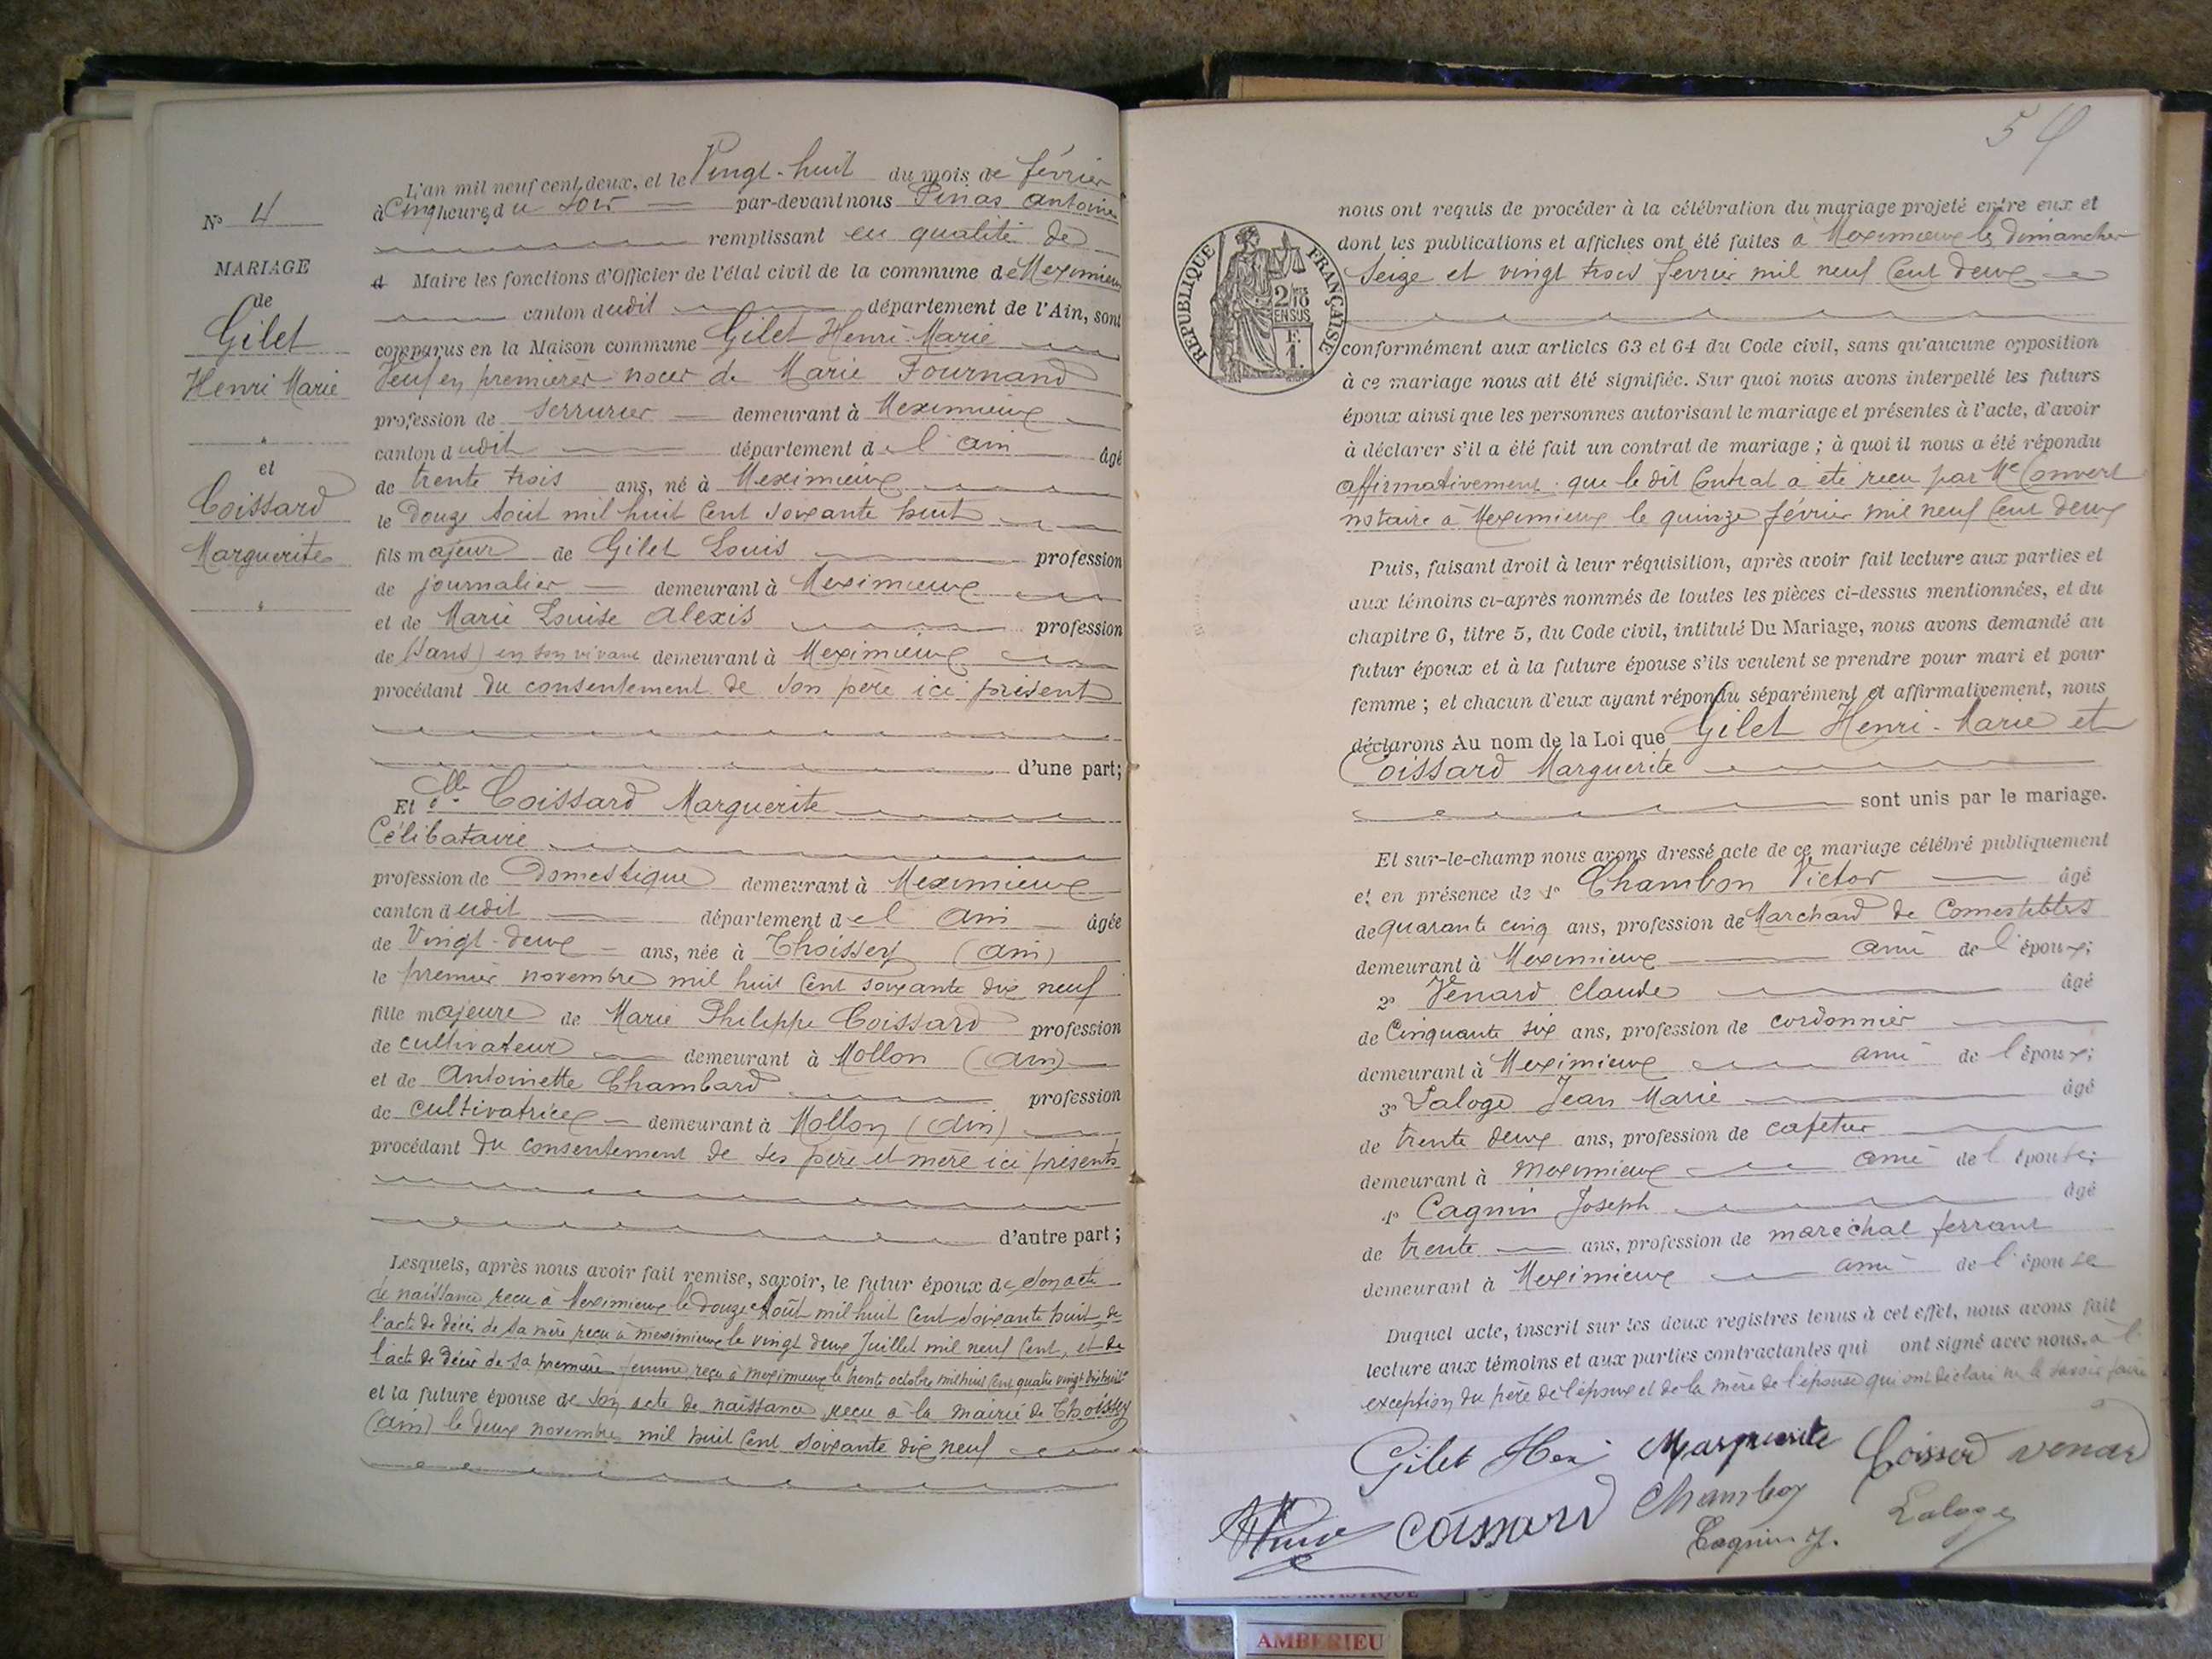 N° 4
MARIAGE
de
Gilet
Henri Marie
et
Coissard
Marguerite
L'an mil neuf cent deux, et le Vingt-huit du mois de février
à Cinq heures du soir par-devant nous Pinas Antoine
remplissant en qualité de
Maire les fonctions d'Officier de l'état civil de la commune de Meximieux
canton dudit département de l'Ain, sont
comparus en la Maison commune Gilet Henri-Marie
Veuf en premières noces de Marie Fournand
profession de serrurier demeurant à Meximieux
canton dudit département de l'ain âgé
de trente trois ans, né à Meximieux
le Douze Aout mil huit Cent soixante huit
fils majeur de Gilet Louis profession
de journalier demeurant à Meximieux
et de Marie Louise Alexis profession
de (sans) en son vivant demeurant à Meximieux
procédant du consentement de son père ici présent
d'une part;
Et dlle Coissard Marguerite
Célibataire
profession de Domestique demeurant à Meximieux
canton dudit département de l'ain âgée
de Vingt-deux ans, née à Thoissey (Ain)
le premier novembre mil huit Cent soixante dix neuf
fille majeure de Marie Philippe Coissard profession
de cultivateur demeurant à Mollon (Ain)
et de Antoinette Chambard profession
de cultivatrice demeurant à Mollon (Ain)
procédant du consentement de ses père et mère ici présents
d'autre part;
Lesquels, après nous avoir fait remise, savoir, le futur époux de son acte
de naissance reçu à Meximieux le douze Août mil huit Cent soixante huit, de
l'acte de décès de sa mère reçu à meximieux le vingt deux Juillet mil neuf Cent, et de
l'acte de décès de sa première femme reçu à meximieux le trente octobre mil huit Cent quatre vingt dix huit
et la future épouse de son acte de naissance reçu à la mairie de Thoissey
(Ain) le deux novembre mil huit Cent soixante dix neuf
54
REPUBLIQUE FRANÇAISE
2/10 EN SUS
F. 1
nous ont requis de procéder à la célébration du mariage projeté entre eux et
dont les publications et affiches ont été faites à Meximieux les dimanches
Seize et vingt trois fevrier mil neuf Cent deux
conformément aux articles 63 et 64 du Code civil, sans qu'aucune opposition
à ce mariage nous ait été signifiée. Sur quoi nous avons interpellé les futurs
époux ainsi que les personnes autorisant le mariage et présentes à l'acte, d'avoir
à déclarer s'il a été fait un contrat de mariage ; à quoi il nous a été répondu
affirmativement que le dit Contrat a été reçu par Me Convert
notaire à Meximieux le quinze février mil neuf Cent deux
Puis, faisant droit à leur réquisition, après avoir fait lecture aux parties et
aux témoins ci-après nommés de toutes les pièces ci-dessus mentionnées, et du
chapitre 6, titre 5, du Code civil, intitulé Du Mariage, nous avons demandé au
futur époux et à la future épouse s'ils veulent se prendre pour mari et pour
femme ; et chacun d'eux ayant répondu séparément et affirmativement, nous
déclarons Au nom de la Loi que Gilet Henri-Marie et
Coissard Marguerite
sont unis par le mariage.
Et sur-le-champ nous avons dressé acte de ce mariage célébré publiquement
et en présence de 1° Chambon Victor âgé
de quarante cinq ans, profession de Marchand de Comestibles
demeurant à Meximieux ami de l'époux;
2° Venard Claude âgé
de Cinquante six ans, profession de cordonnier
demeurant à Meximieux ami de l'époux;
3° Laloge Jean Marie âgé
de trente deux ans, profession de cafetier
demeurant à Meximieux ami de l'épouse;
4° Cagnin Joseph âgé
de trente ans, profession de maréchal ferrant
demeurant à Meximieux ami de l'épouse
Duquel acte, inscrit sur les deux registres tenus à cet effet, nous avons fait
lecture aux témoins et aux parties contractantes qui ont signé avec nous, à l'
exception du père de l'époux et de la mère de l'épouse qui ont déclaré ne le savoir faire
Gilet Heni Marguerite Coissard Venard
Coissard Chambon Laloge
Cagnin J.
AMBERIEU